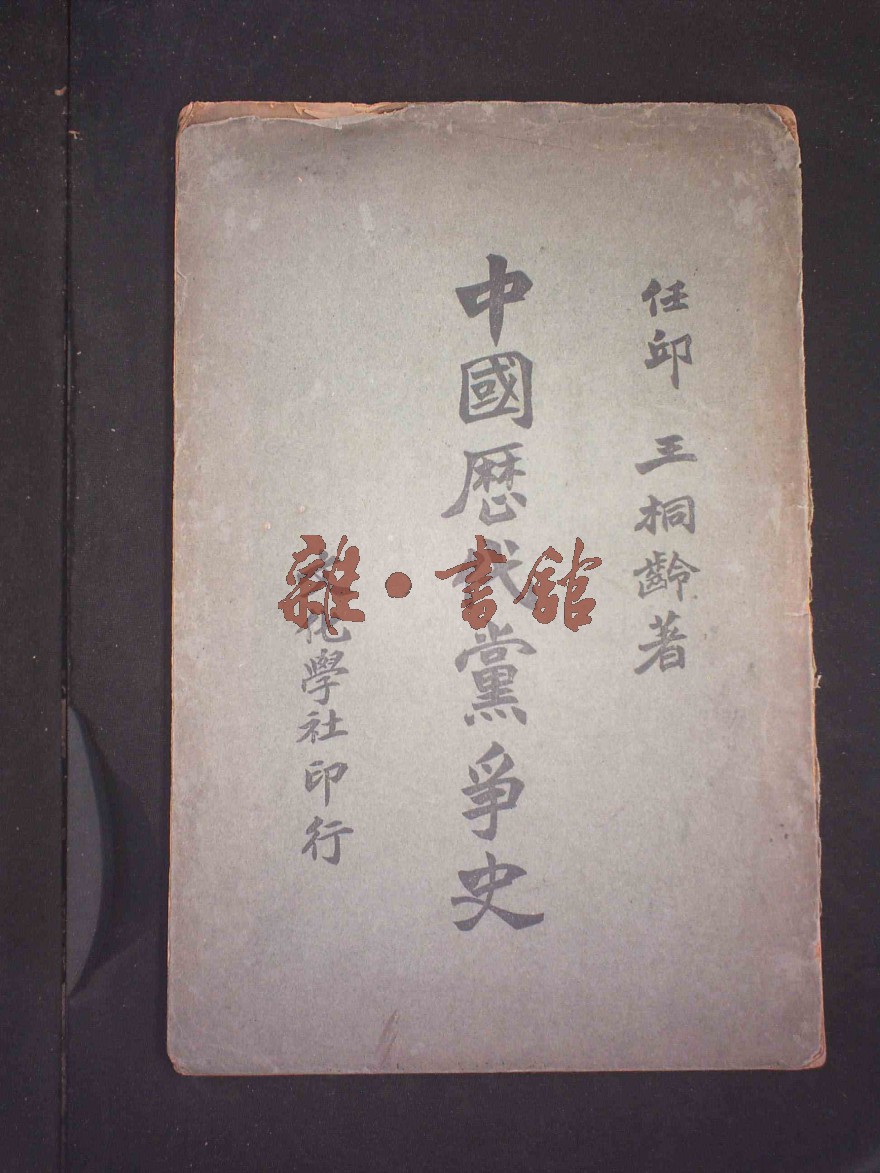 任邱 王桐齡著
中國歷代黨爭史
化學社印行
雜·書館